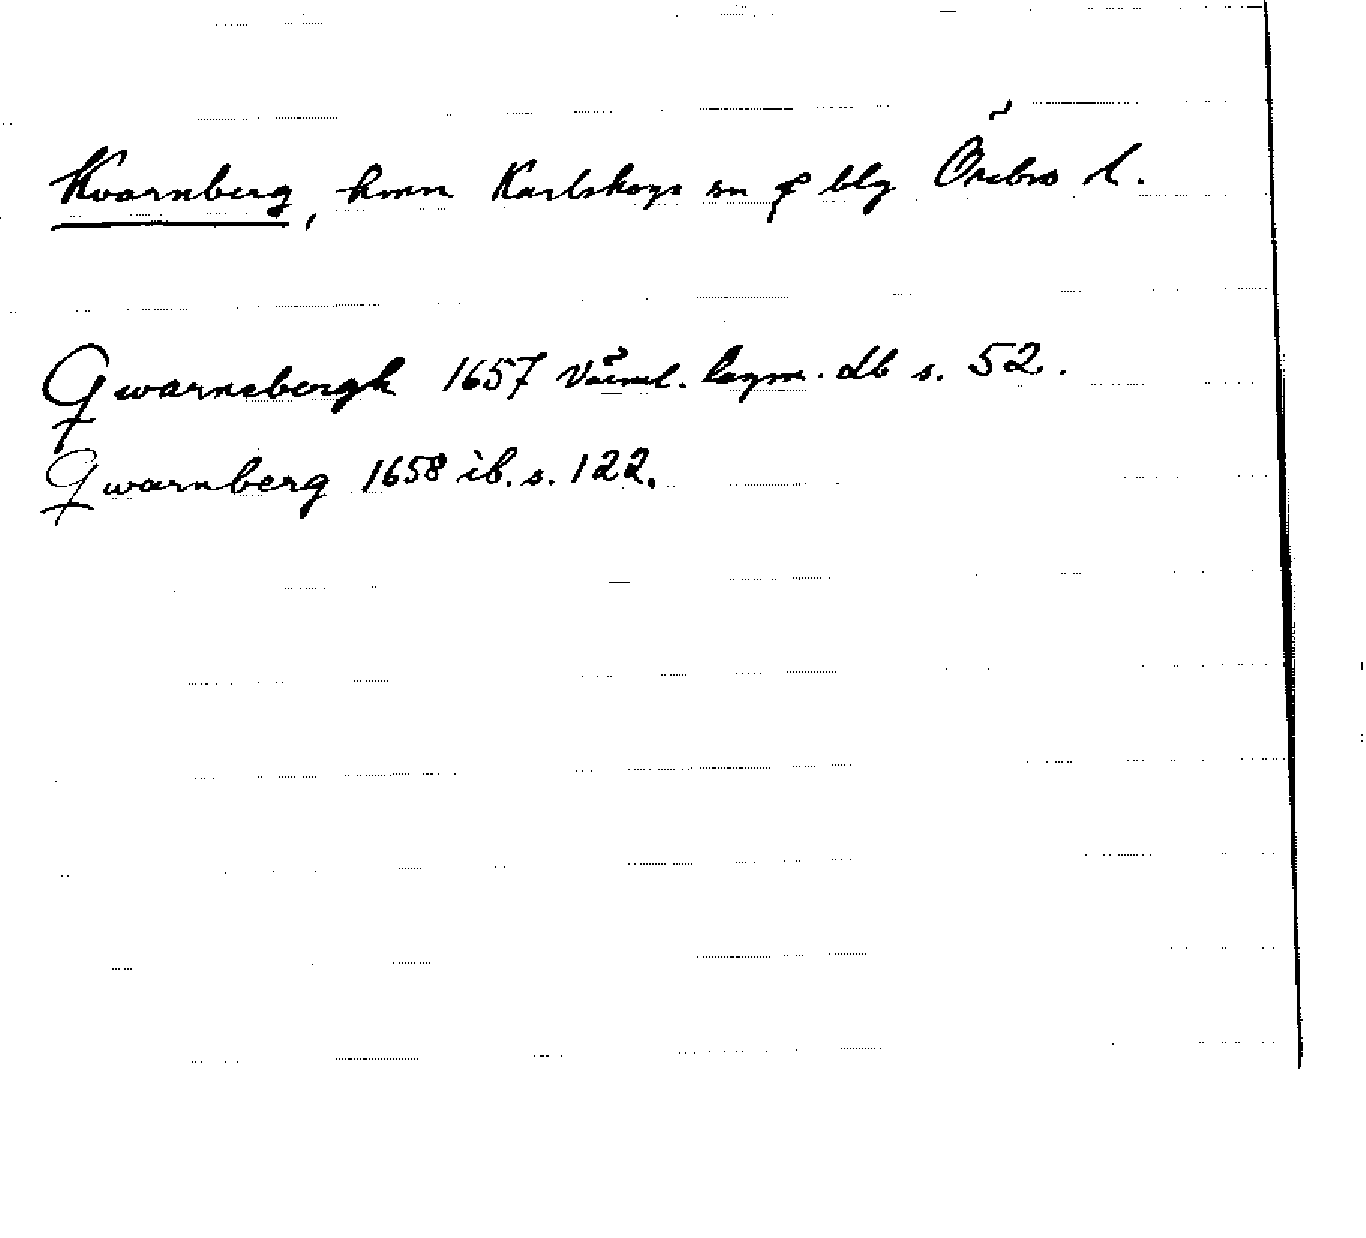 Kvarnberg, hmn Karlskoga sn o blg Örebro l.
Qwarnebergh 1657 Värml. lagm. db s. 52.
Qwarnberg 1658 ib. s. 122.